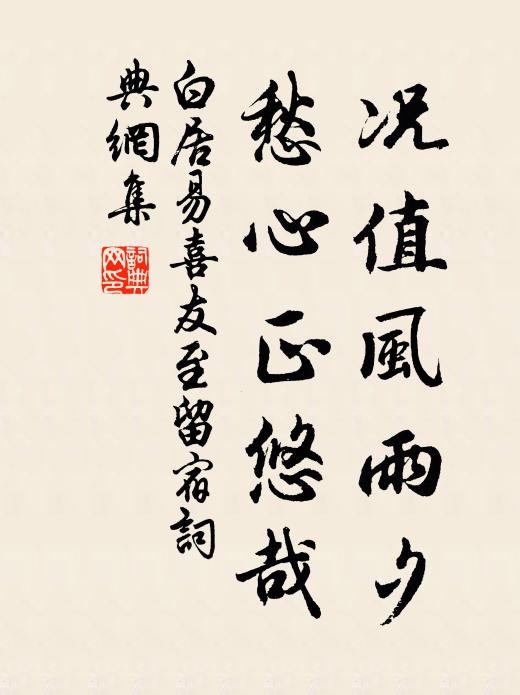 况值風雨夕
愁心正悠哉
白居易喜友至留宿詞
典網集
詞典
网印